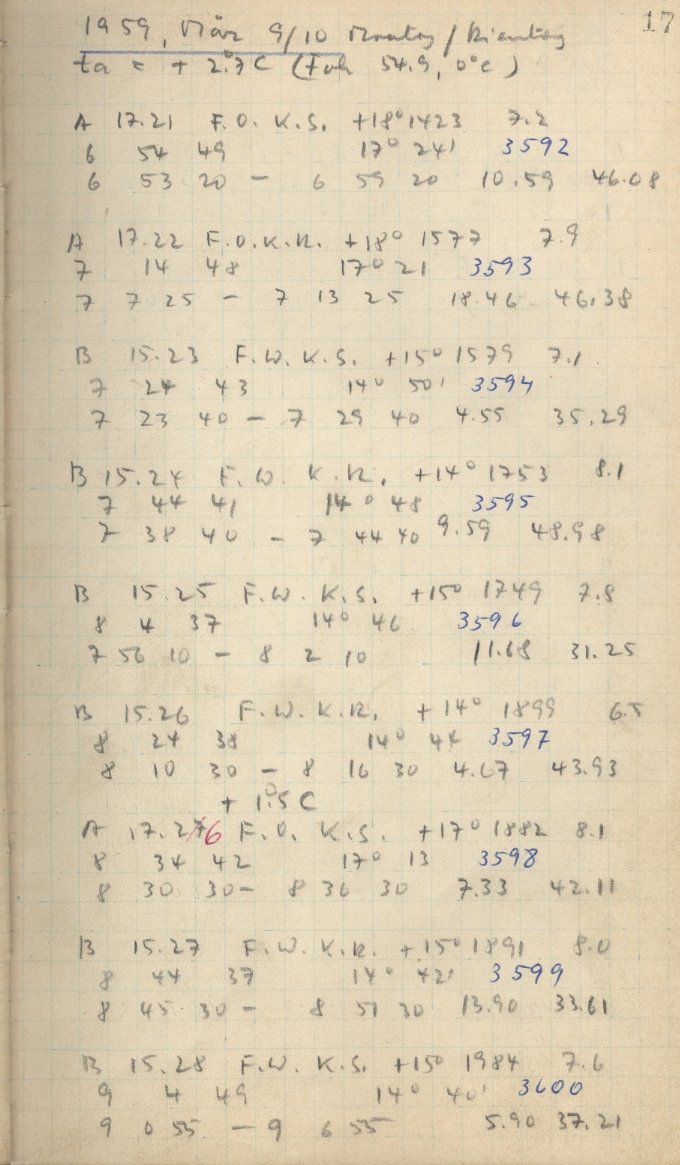 17
1959, März 9/10 Montag / Dienstag
ta = + 2.°7 C (Feh 54.9, 0°c)
A 17.21 F.O. K.S. +18° 1423 7.2
6 54 49 17° 24' 3592
6 53 20 - 6 59 20 10.59 46.08
A 17.22 F.O.K.R. +18° 1577 7.9
7 14 48 17° 21 3593
7 7 25 - 7 13 25 18.46 46.38
B 15.23 F.W. K.S. +15° 1579 7.1
7 24 43 14° 50' 3594
7 23 40 - 7 29 40 4.55 35.29
B 15.24 F.W. K.R. +14° 1753 8.1
7 44 41 14° 48 3595
7 38 40 - 7 44 40 9.59 48.98
B 15.25 F.W. K.S. +15° 1749 7.8
8 4 37 14° 46 3596
7 56 10 - 8 2 10 11.68 31.25
B 15.26 F.W. K.R. +14° 1899 6.5
8 24 38 14° 44 3597
8 10 30 - 8 16 30 4.67 43.93
+ 1.°5 C
A 17.26 F.O. K.S. +17° 1882 8.1
8 34 42 17° 13 3598
8 30 30 - 8 36 30 7.33 42.11
B 15.27 F.W. K.R. +15° 1891 8.0
8 44 37 14° 42' 3599
8 45 30 - 8 51 30 13.90 33.61
B 15.28 F.W. K.S. +15° 1984 7.6
9 4 49 14° 40' 3600
9 0 55 - 9 6 55 5.90 37.21